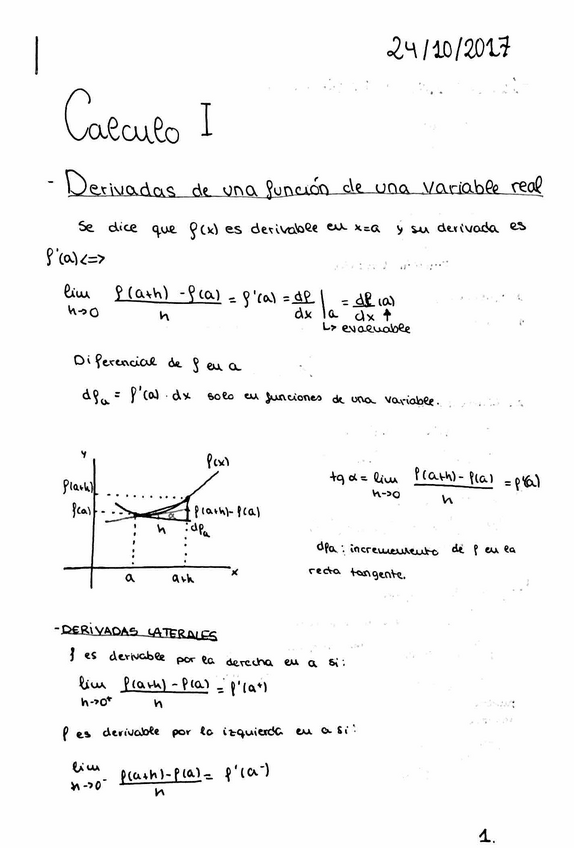 24/10/2017
Calculo I
- Derivadas de una función de una variable real
Se dice que f(x) es derivable en x=a y su derivada es
f'(a)<=>
lim h->0 f(a+h) - f(a) / h = f'(a) = df/dx |a = df/dx (a)
↳ evaluable
Diferencial de f en a
dfa = f'(a) · dx solo en funciones de una variable.
y
f(x)
f(a+h)
f(a)
f(a+h)-f(a)
α
h
dfa
a
a+h
x
tg α = lim h->0 f(a+h) - f(a) / h = f'(a)
dfa: incremento de f en la
recta tangente.
- DERIVADAS LATERALES
f es derivable por la derecha en a si:
lim h->0⁺ f(a+h) - f(a) / h = f'(a⁺)
f es derivable por la izquierda en a si:
lim h->0⁻ f(a+h)-f(a) / h = f'(a⁻)
1.